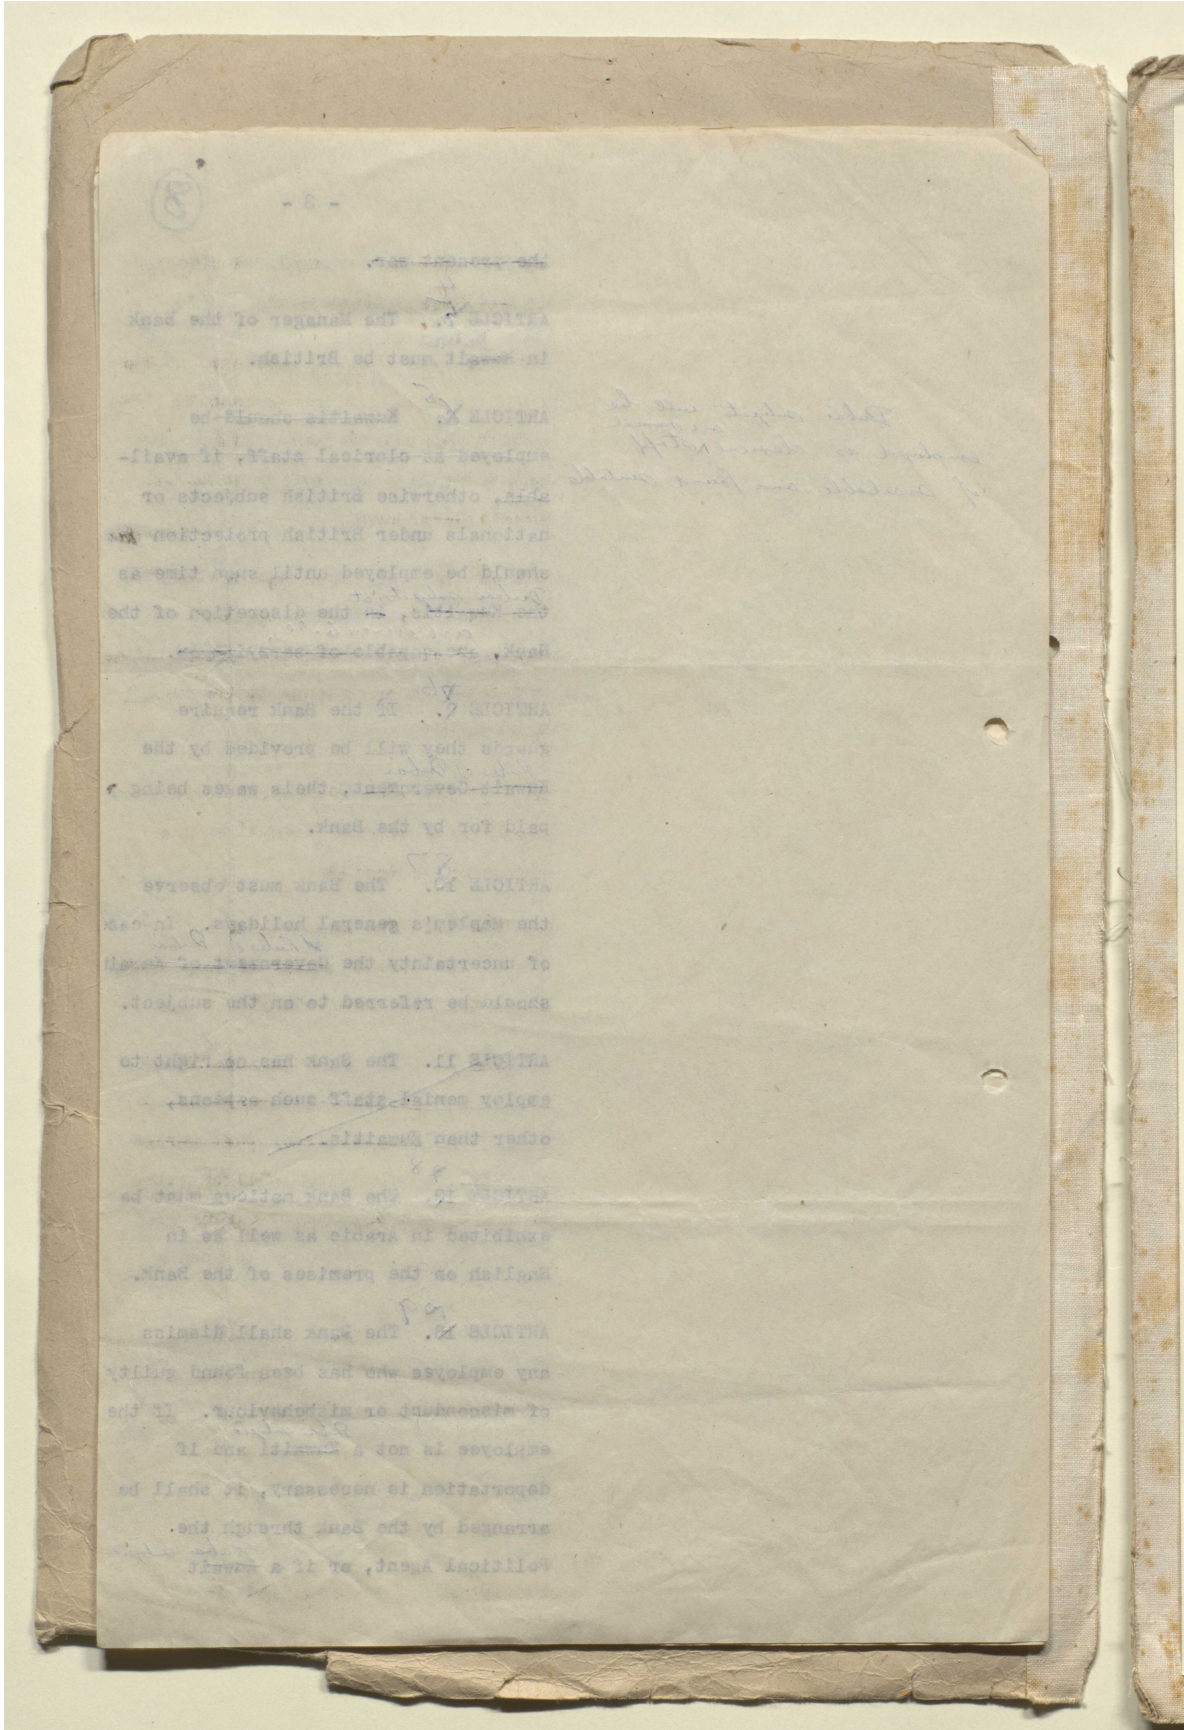 - 2 -
the present war.
ARTICLE 7. The Manager of the bank
in Kuwait must be British.
ARTICLE 8. Kuwaitis should be
employed as clerical staff, if avail-
able, otherwise British subjects or
nationals under British protection
should be employed until such time as
the Kuwaitis, in the discretion of the
Bank, are capable of
ARTICLE 9. If the Bank require
guards they will be provided by the
Kuwait Government, their wages being
paid for by the Bank.
ARTICLE 10. The Bank must observe
the Moslem's general holidays. In case
of uncertainty the Government of Kuwait
should be referred to on the subject.
ARTICLE 11. The Bank has no right to
employ menial staff such as peons,
other than Kuwaitis.
ARTICLE 12. The Bank notices must be
exhibited in Arabic as well as in
English on the premises of the Bank.
ARTICLE 13. The Bank shall dismiss
any employee who has been found guilty
of misconduct or misbehaviour. If the
employee is not a Kuwaiti and if
deportation is necessary, it shall be
arranged by the Bank through the
Political Agent, or if a Kuwait
Dubai subjects will be
employed as clerical staff
if available and found suitable